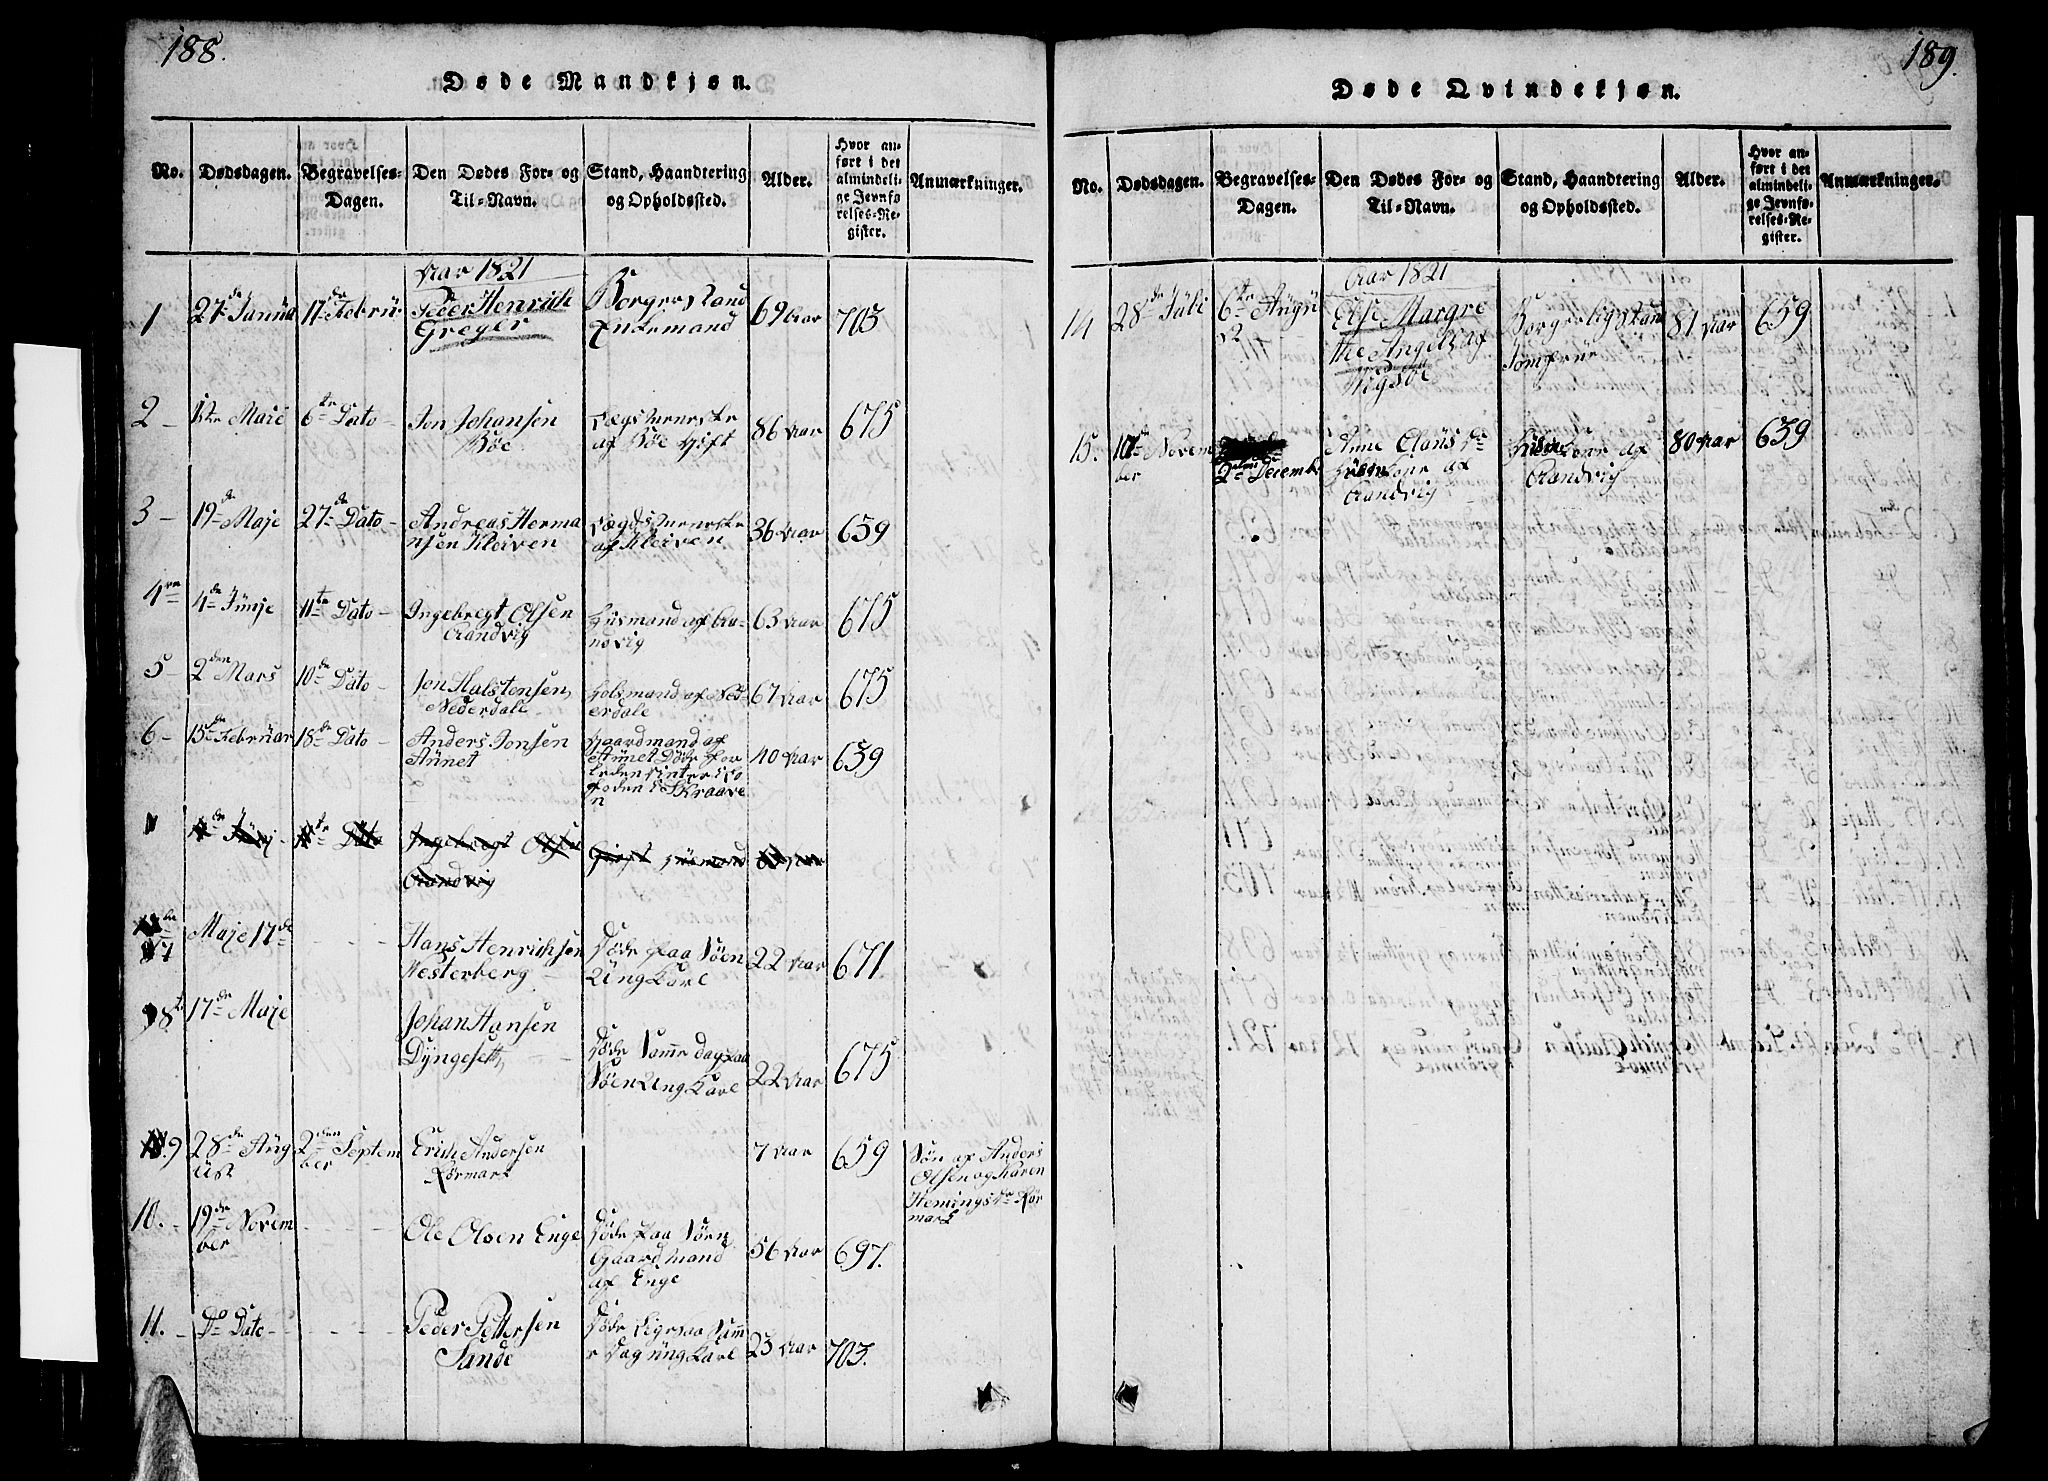 188.
Døde Mandkjøn.
No.
Dødsdagen.
Begravelses-
Dagen.
Den Dødes For- og
Til-Navn.
Stand, Haandtering
og Opholdssted.
Alder.
Hvor an-
ført i det
almindeli-
ge Jevnfø-
relses-Re-
gister.
Anmærkninger.
Aar 1821
1
27de Janua
11de Febru
Peder Henrich
Greger
Borgerstand
Enkemand
69 Aar
703
2 -
1ste Maje
6te Dato -
Jon Johansen
Bøe
af Bøe Gift
86 Aar
675
3 -
19de Maje
27de Dato -
Andreas Herma
nsen Kleiven
af Kleiven
36 Aar
659
4
4de Junje
11te Dato -
Ingebregt Olsen
Aandvig
Husmand af Aa-
ndvig
63 Aar
675
5 -
2den Mars
10de Dato -
Jon Halstensen
Nederdale
af Ned-
erdale
67 Aar
675
6 -
15de Februar
18de Dato -
Anders Jonsen
Aunet
Gaardmand af
Aunet Døde for
leden vinter
Skraave
n
40 Aar
659
Ingebregt Olsen
Aandvig
Maje 17de
Hans Henrichsen
Westerberg
Døde paa Søen
Ung Karl
22 Aar
671.
8
17de Maje
Johan Hansen
Dyngeset
Døde Samme dag paa
Søen Ung Karl
22 Aar
675
9
28de Aug
ust
2den Septem
ber
Erich Andersen
Rørmark
7 Aar
659
Søn af Anders
Olsen og Karen
Hemingsdr Rør
mark
10. -
19de Novem
ber
Ole Olsen Enge
Døde paa Søen
Gaardmand
af Enge
56 Aar
697.
11. -
Do Dato -
Peder Pettersen
Sande
Døde Ligesaa Samm
e Dag ung Karl
23 Aar
703.
189.
Døde Qvindekjøn.
No.
Dødsdagen.
Begravelses-
Dagen.
Den Dødes For- og
Til-Navn.
Stand, Haandtering
og Opholdssted.
Alder.
Hvor an-
ført i det
almindeli-
ge Jevnfø-
relses-Re-
gister.
Anmærkninger.
Aar 1821
14
28de Juli
6te Augu
st
Else Margre
the Angel af
Vigsøe
Borgerlig Stan
Jomfrue
81 Aar
659
15.
Novem
ber
2den Decemb
Anne Clausdr
af
Aandvig
af
Aandvig
80 Aar
659